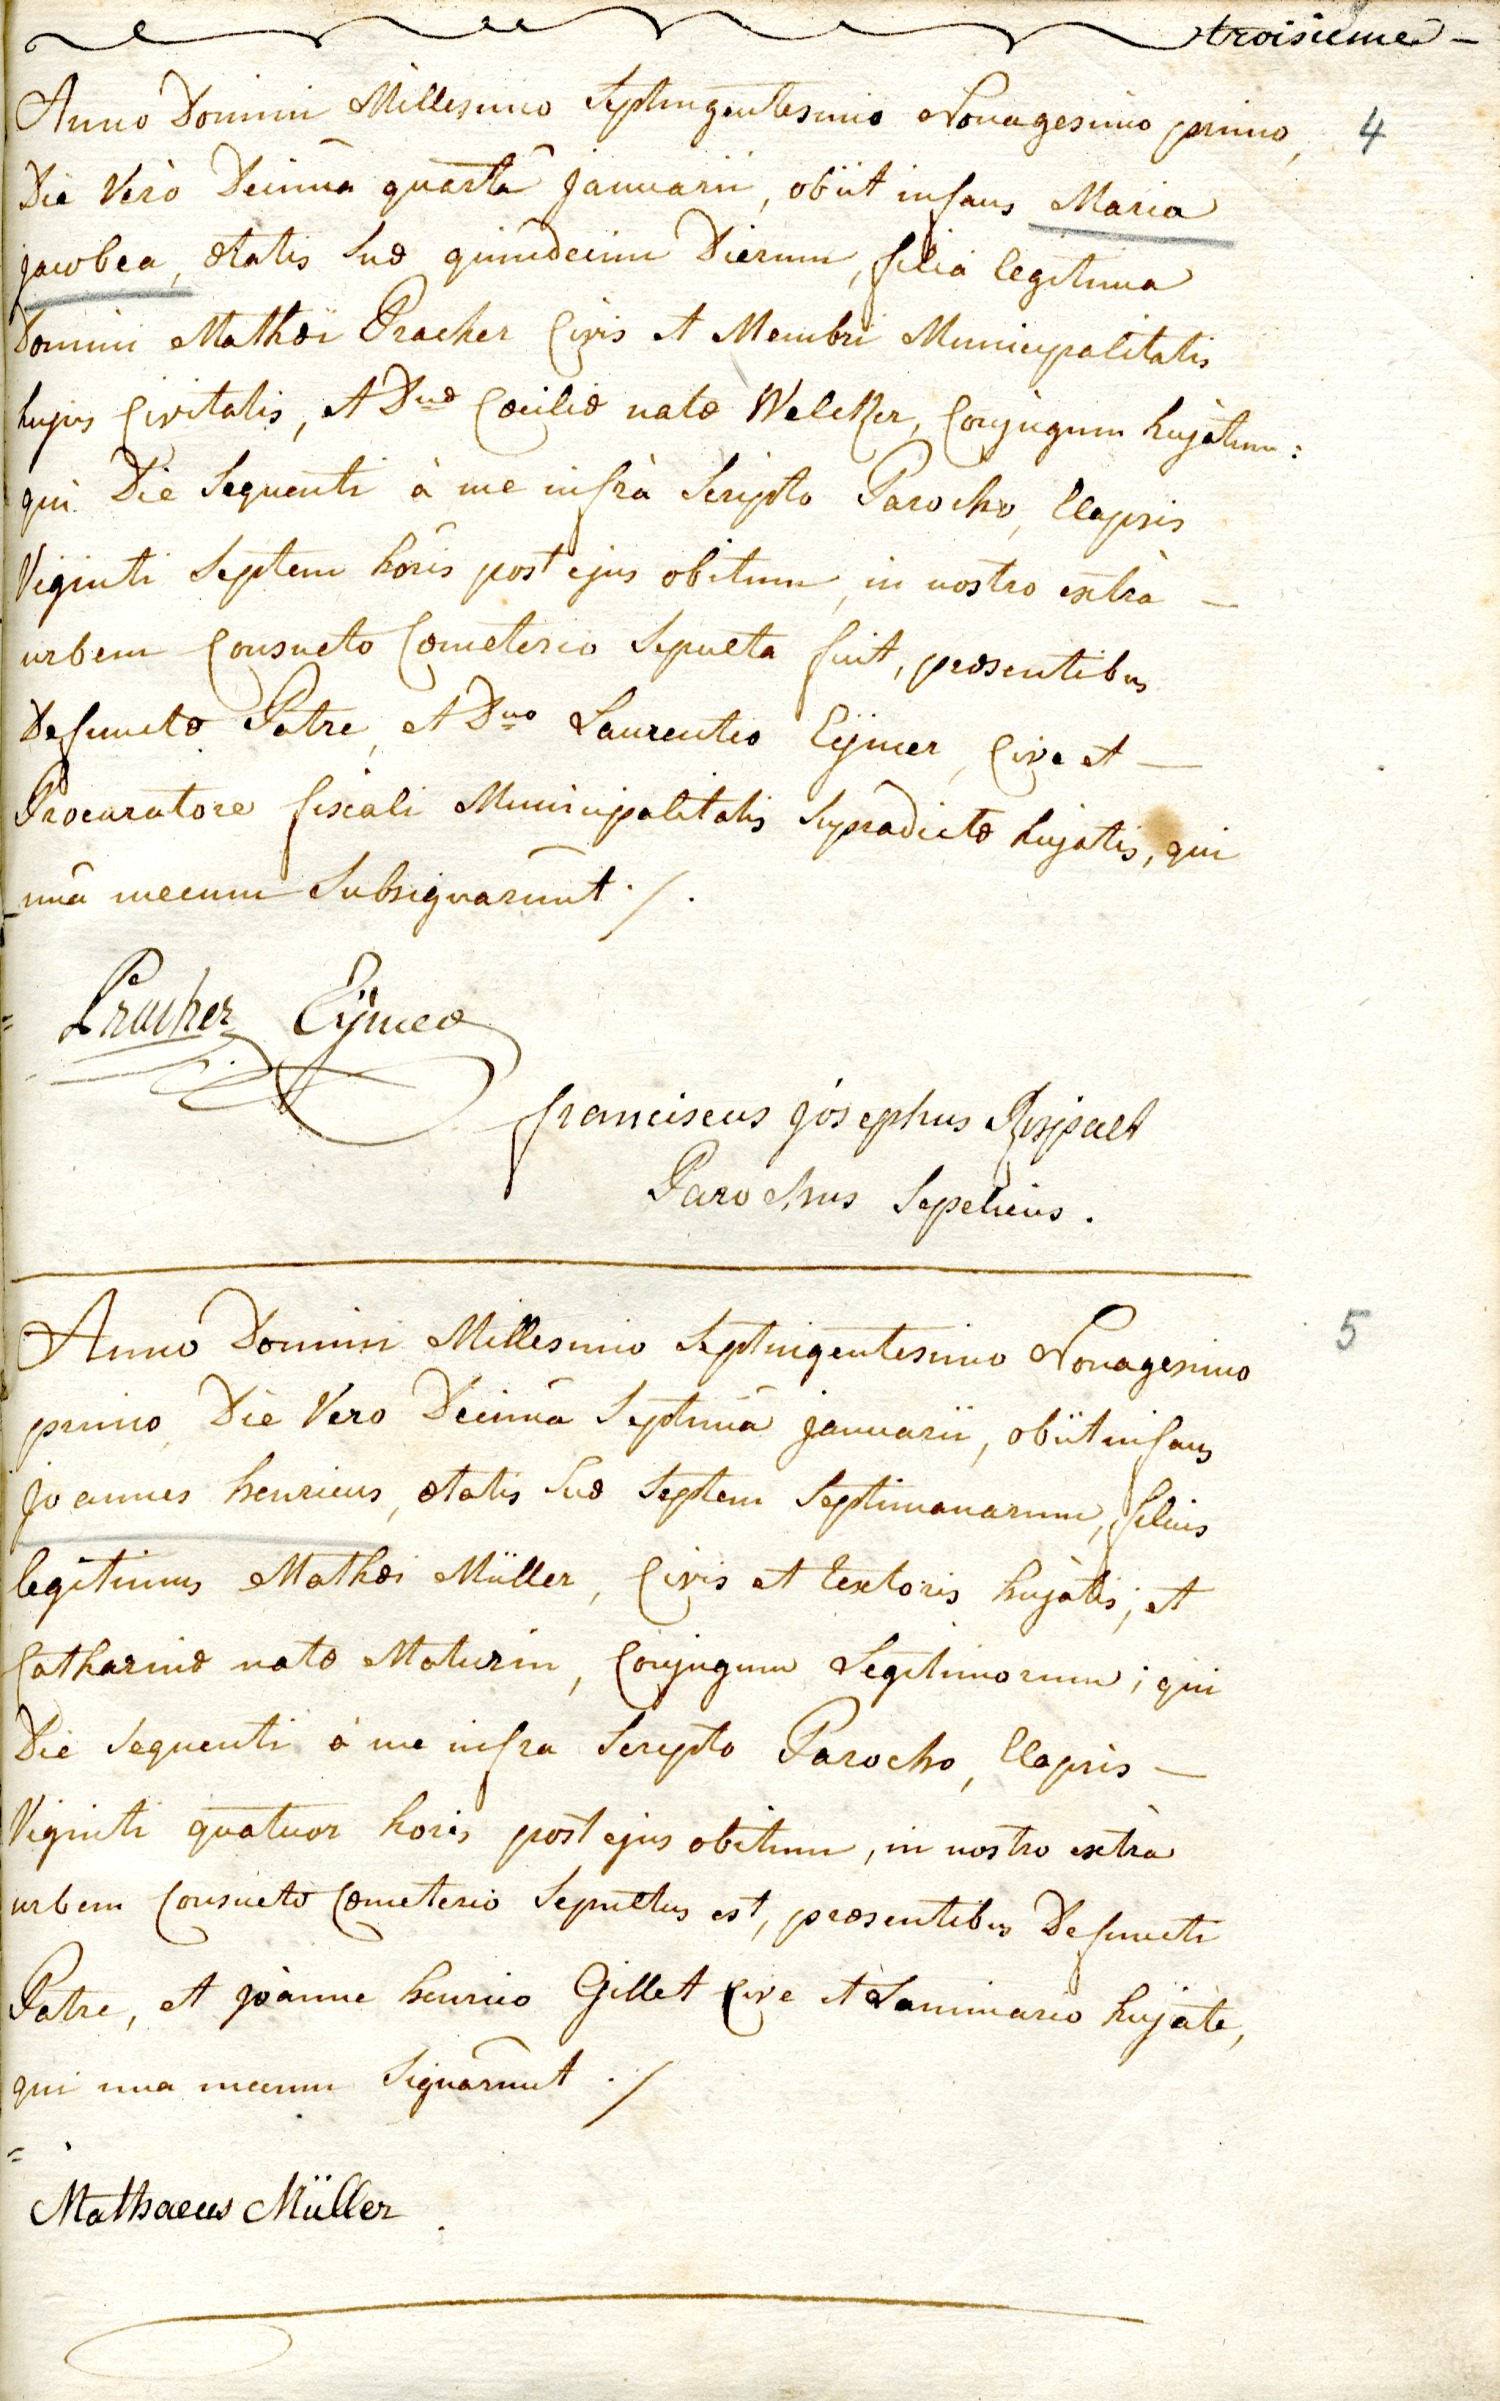 troisieme —
Anno Domini Millesimo Septingentesimo Nonagesimo primo, 4
Die Verò Decimâ quartâ januarii, obiit infans Maria
jacobea, ætatis suæ quindecim Dierum, filia legitima
Domini Mathæi Pracher Civis et Membri Municipalitatis
hujus Civitatis, et Dnæ Cæciliæ natæ Welcker, Conjugum hujatum:
qui Die Sequenti à me infrà Scripto Parocho, Elapsis
Viginti Septem horis post ejus obitum, in nostro extrà —
urbem Consueto Cœmeterio Sepulta fuit, præsentibus
Defunctæ Patre, et Dno Laurentio Eÿmer, Cive et —
Procuratore fiscali Municipalitatis Supradictæ hujatis, qui
unâ mecum Subsignarunt ./.
Pracher Eÿmer
franciscus josephus
Parochus Sepeliens.
Anno Domini Millesimo Septingentesimo Nonagesimo 5
primo, Die Vero Decimâ Septimâ januarii, obiit infans
joannes henricus, ætatis suæ Septem Septimanarum, filius
legitimus Mathæi Müller, Civis et textoris hujatis; et
Catharinæ natæ Maturin, Conjugum Legitimorum; qui
Die Sequenti à me infra Scripto Parocho, Elapsis —
Viginti quatuor horis post ejus obitum, in nostro extrà
urbem Consueto Cœmeterio Sepultus est, præsentibus Defuncti
Patre, et joanne henrico Gillet Cive et Laminario hujate,
qui una mecum Signarunt ./
Mathaeus Müller